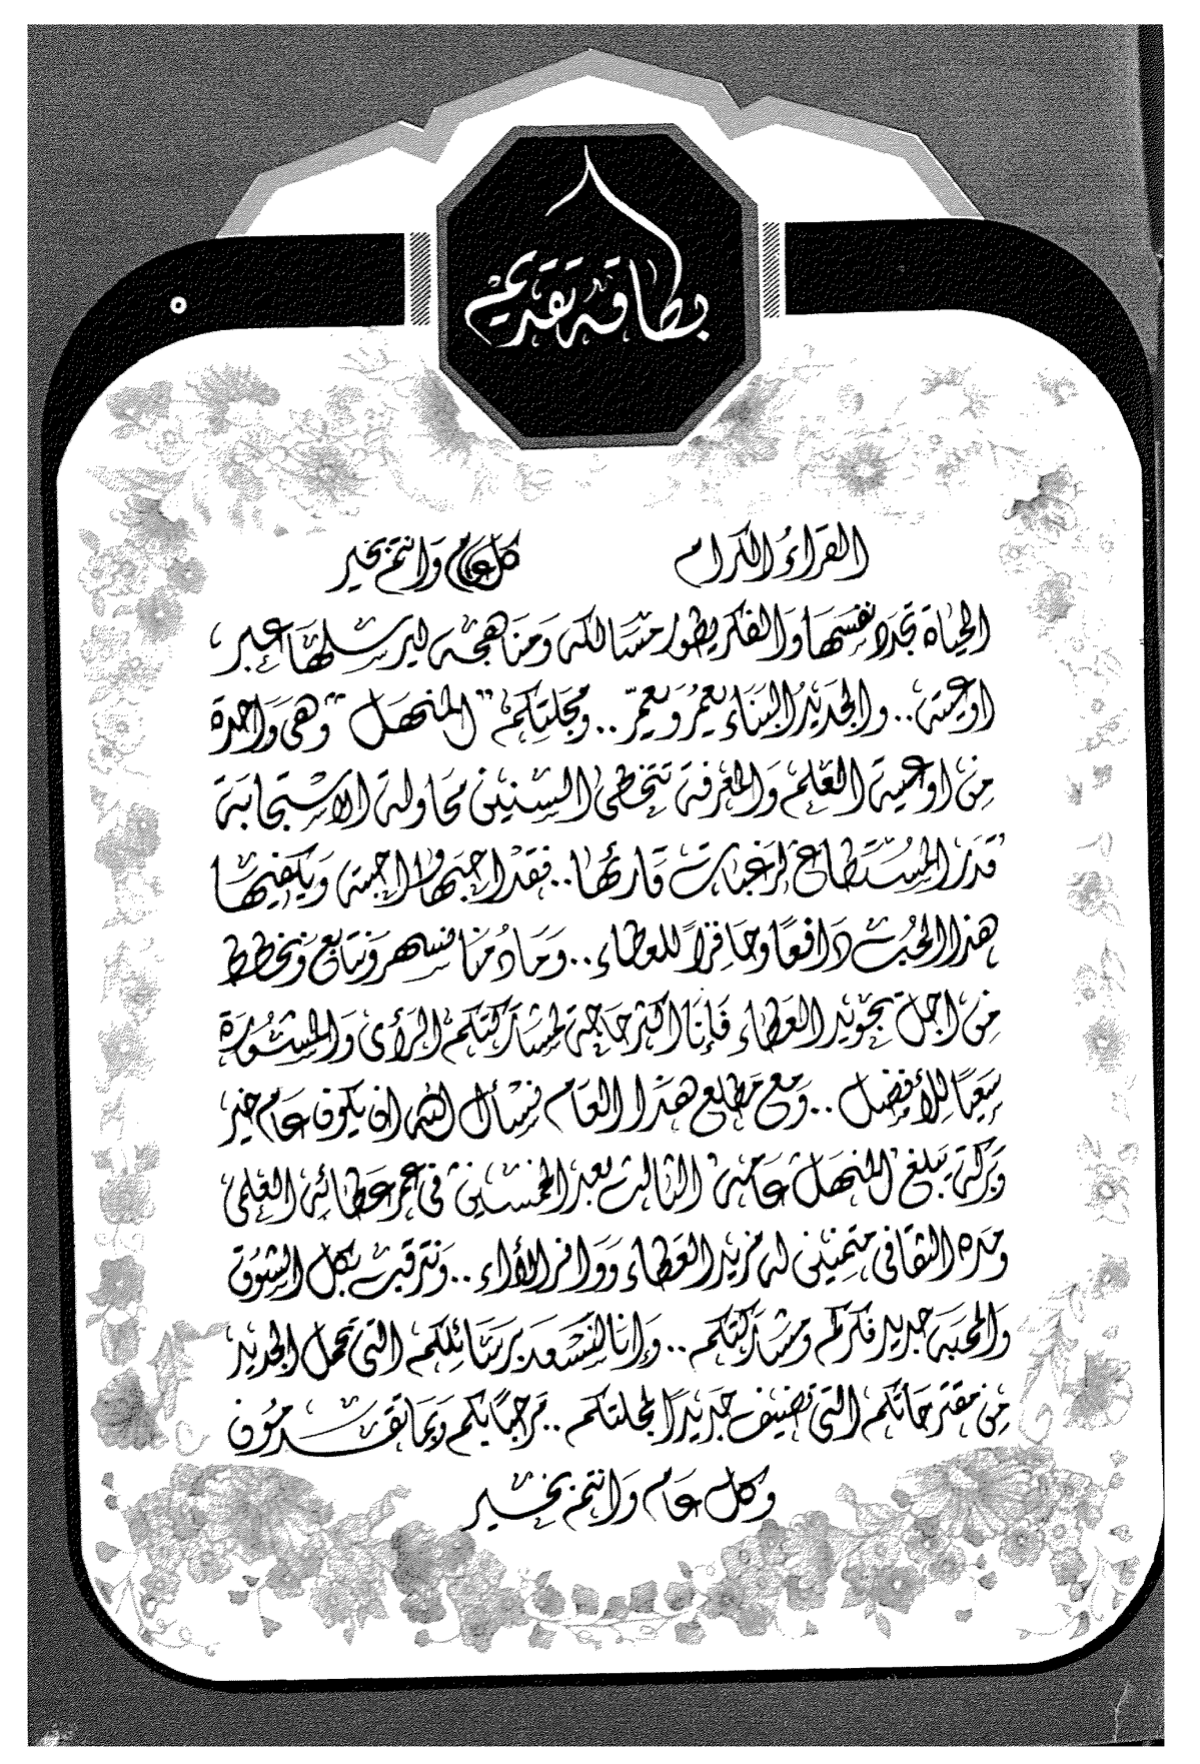 بطاقة تقديم
القراء الكرام
كل عام وانتم بخير
الحياة تجدد نفسها والفكر يطور مسالكه ومناهجه ليرسلها عبر
اوعيته.. والجديد البناء يعمر ويعمّر.. ومجلتكم "المنهل" وهي واحدة
من اوعية العلم والمعرفة تتخطى السنين محاولة الاستجابة
قدر المستطاع لرغبات قارئها.. فقد احبها واحبته ويكفيها
هذا الحب دافعًا وحافزًا للعطاء.. وما دمنا نسهر ونتابع ونخطط
من اجل تجويد العطاء فإنا اكثر حاجة لمشاركتكم الرأى والمشورة
سعيًا للأفضل.. ومع مطلع هذا العام نسأل الله ان يكون عام خير
وبركة يبلغ المنهل عامه الثالث بعد الخمسين في عمر عطائه العلمي
ومده الثقافي متمنين له مزيد العطاء ووافر الأداء.. ونترقب بكل الشوق
والمحبة جديد فكركم ومشاركتكم.. وإنا لنسعد برسائلكم التي تحمل الجديد
من مقترحاتكم التي تضيف جديدًا لمجلتكم.. مرحبًا بكم وبما تقدمون
وكل عام وانتم بخير